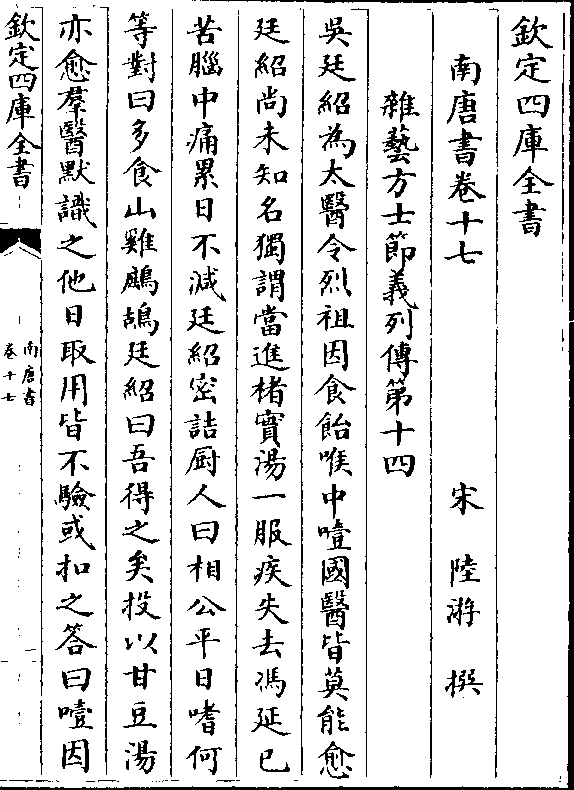 欽定四庫全書
南唐書卷十七 宋 陸游 撰
雜藝方士節義列傳第十四
吳廷紹為太醫令烈祖因食飴喉中噎國醫皆莫能愈
廷紹尚未知名獨謂當進楮實湯一服疾失去馮延已
苦腦中痛累日不減廷紹密詰厨人曰相公平日嗜何
等對曰多食山雞鷓鴣廷紹曰吾得之矣投以甘豆湯
亦愈羣醫默識之他日取用皆不驗或扣之答曰噎因
欽定四庫全書
南唐書
卷十七